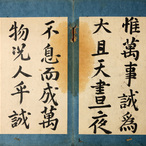 惟萬事誠為
大且天晝夜
不息而成萬
物況人乎誠